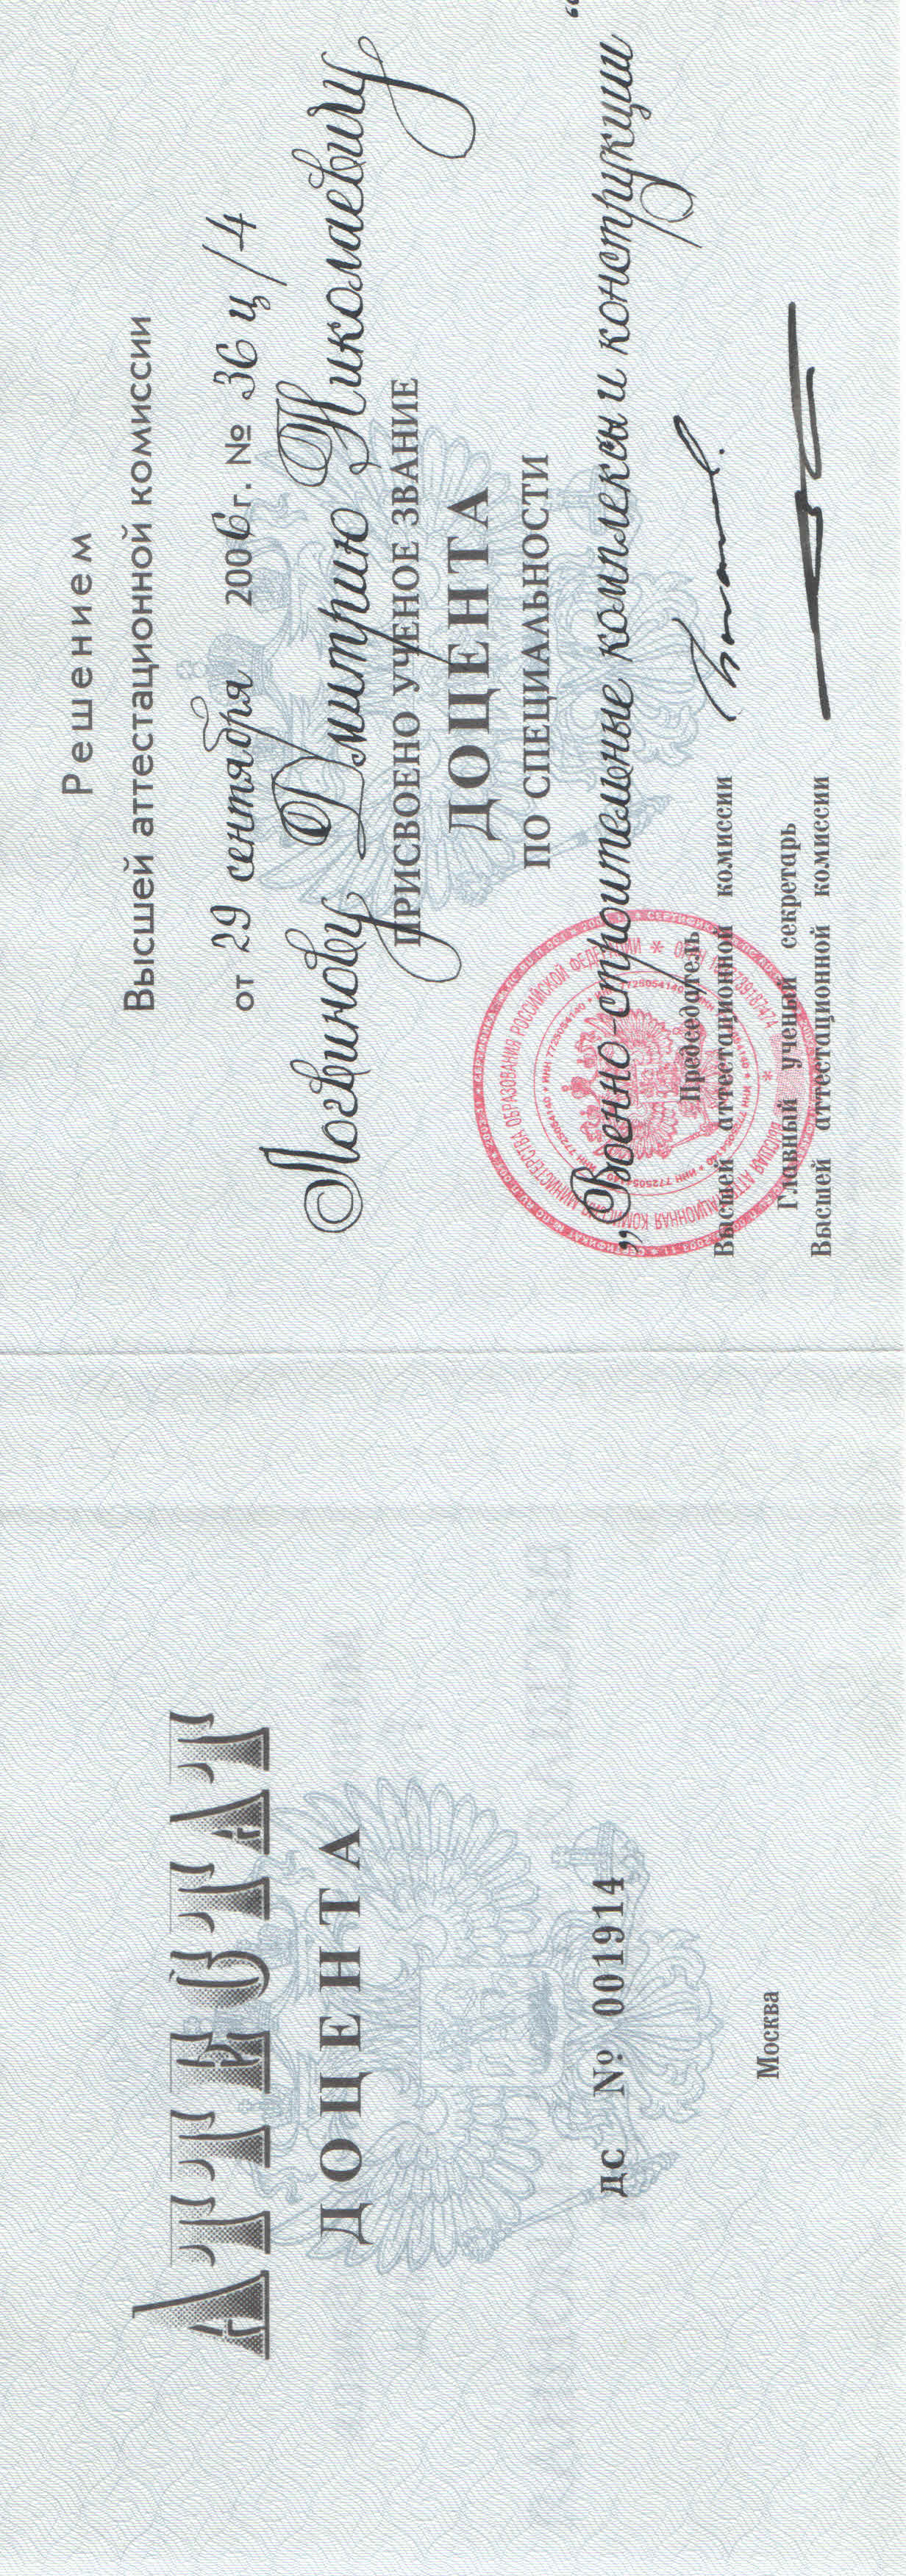 Аттестат
ДОЦЕНТА
ДС № 001914
Москва
Решением
Высшей аттестационной комиссии
от 29 сентября 2006 г. № 36 ц/4
Логвинову Дмитрию Николаевичу
ПРИСВОЕНО УЧЕНОЕ ЗВАНИЕ
ДОЦЕНТА
ПО СПЕЦИАЛЬНОСТИ
„Военно-строительные комплексы и конструкции“
Председатель
Высшей аттестационной комиссии
Главный ученый секретарь
Высшей аттестационной комиссии
ВЫСШАЯ АТТЕСТАЦИОННАЯ КОМИССИЯ МИНИСТЕРСТВА ОБРАЗОВАНИЯ РОССИЙСКОЙ ФЕДЕРАЦИИ
ИНН 7725054140